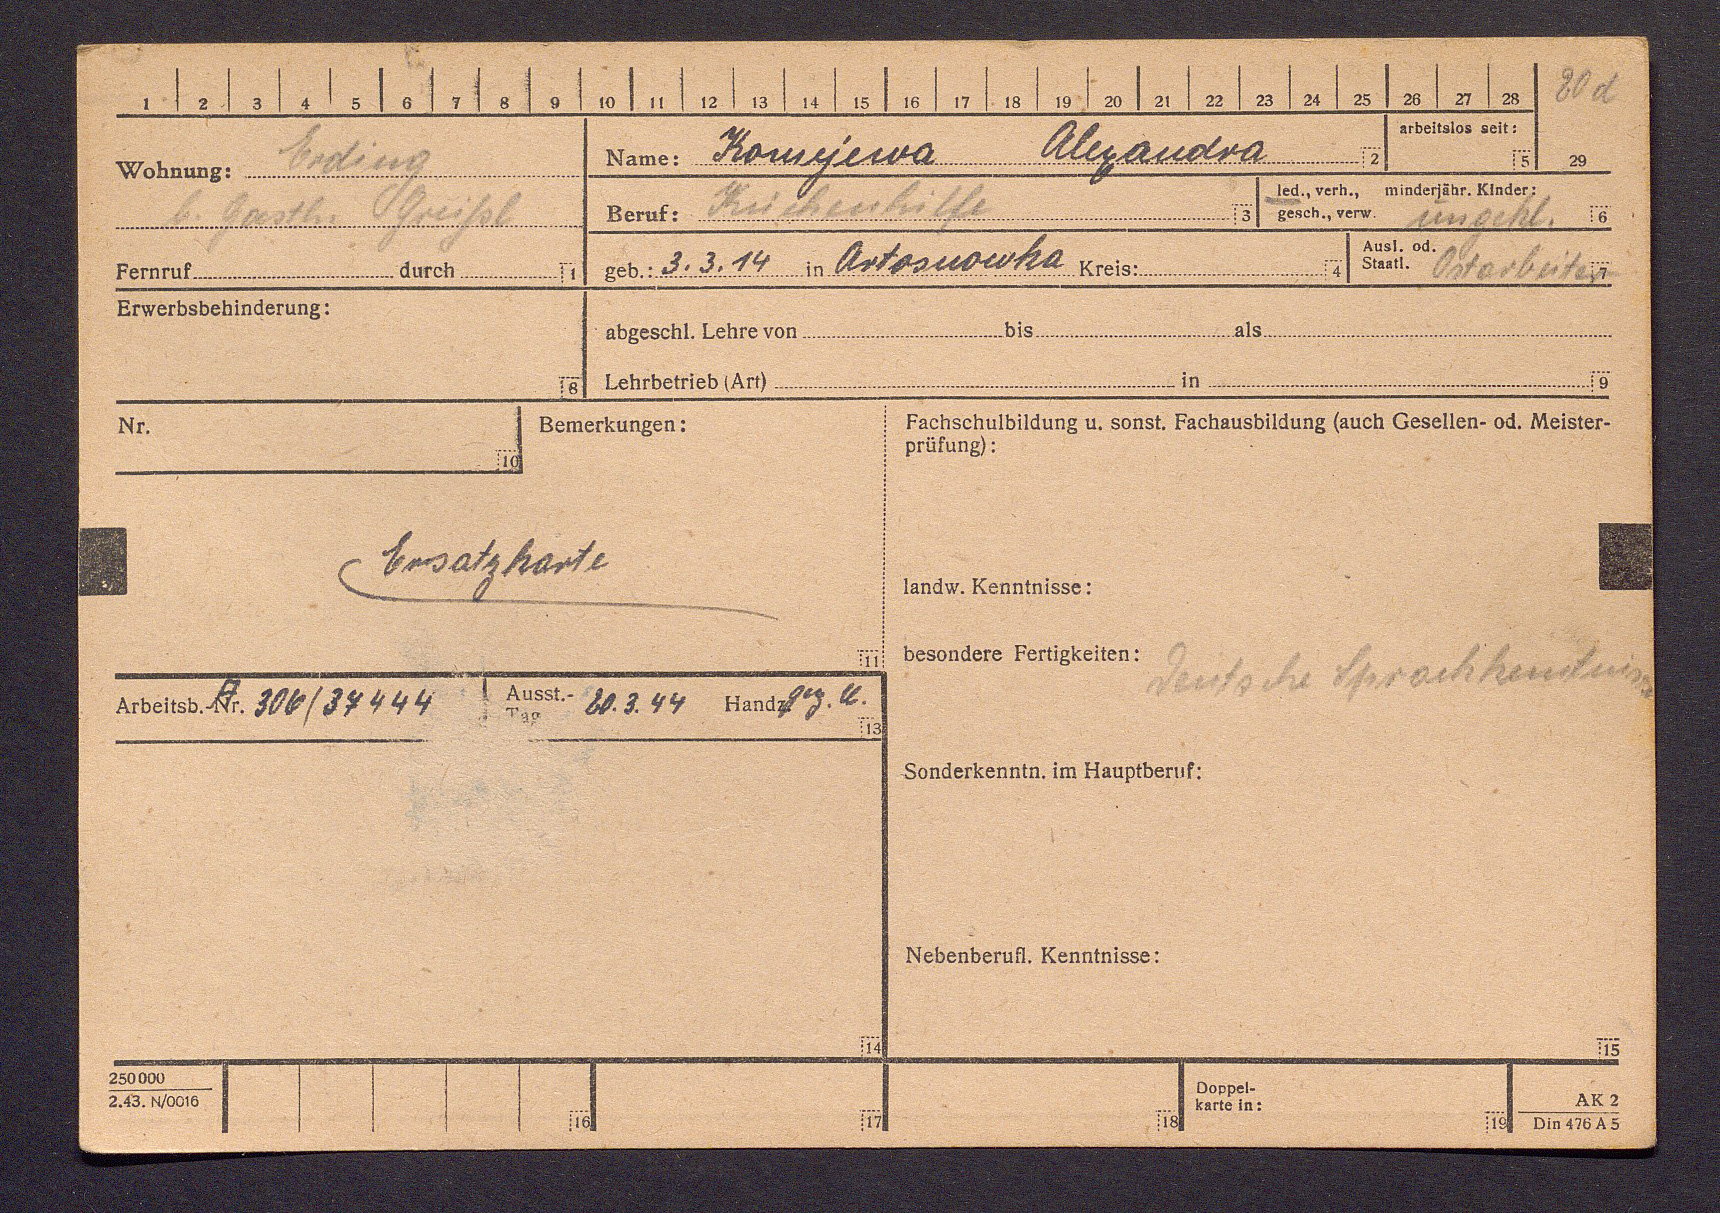 1 2 3 4 5 6 7 8 9 10 11 12 13 14 15 16 17 18 19 20 21 22 23 24 25 26 27 28 20 d
Wohnung: Erding
b. Gasth. Greißl
Fernruf durch 1
Name: Alexandra 2
arbeitslos seit: 5
29
Beruf: Küchenhilfe 3
led., verh., minderjähr. Kinder:
gesch., verw. ungekl. 6
geb.: 3.3.14 in Artosnowka Kreis: 4
Ausl. od.
Staatl. Ostarbeiter 7
Erwerbsbehinderung:
8
abgeschl. Lehre von bis als
Lehrbetrieb (Art) in 9
Nr.
10
Bemerkungen:
Ersatzkarte
11
Fachschulbildung u. sonst. Fachausbildung (auch Gesellen- od. Meister-
prüfung):
landw. Kenntnisse:
besondere Fertigkeiten: Deutsche
Arbeitsb.-Nr. A 306/37444 Ausst.-
Tag 20.3.44 Handz. gez. U.
13
Sonderkenntn. im Hauptberuf:
Nebenberufl. Kenntnisse:
14
15
250000
2.43. N/0016
16
17
18
Doppel-
karte in:
19
AK 2
Din 476 A 5